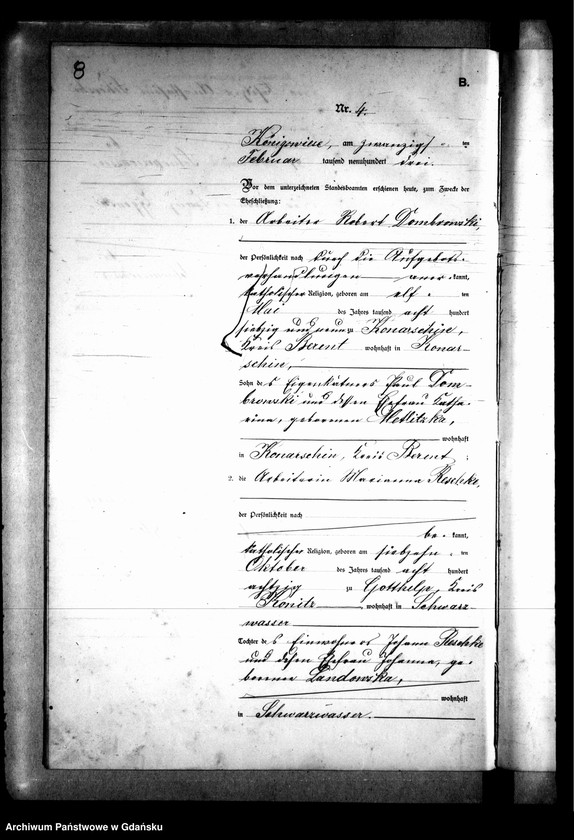 8
B.
Nr. 4.
Königswiese, am zwanzigsten
Februar tausend neunhundert drei.
Vor dem unterzeichneten Standesbeamten erschienen heute, zum Zwecke der
Eheschließung:
1. der Arbeiter Robert Dombrowski,
der Persönlichkeit nach durch die Aufgebots-
verhandlungen aner-kannt,
katholischer Religion, geboren am elften
Mai des Jahres tausend acht hundert
siebzig und neun zu Konarschin,
Kreis Berent wohnhaft in Konar-
schin,
Sohn des Eigenkätners Paul Dom-
browski und dessen Ehefrau Katha-
rina, geborenen Metlitzka,
wohnhaft
in Konarschin, Kreis Berent;
2. die Arbeiterin Marianna Reschke,
der Persönlichkeit nach
be-kannt,
katholischer Religion, geboren am siebzehnten
Oktober des Jahres tausend acht hundert
achtzig zu Gotthelp, Kreis
Konitz wohnhaft in Schwarz-
wasser
Tochter des Einwohners Johann Reschke
und dessen Ehefrau Johanna, ge-
borenen Landowska,
wohnhaft
in Schwarzwasser.
Archiwum Państwowe w Gdańsku